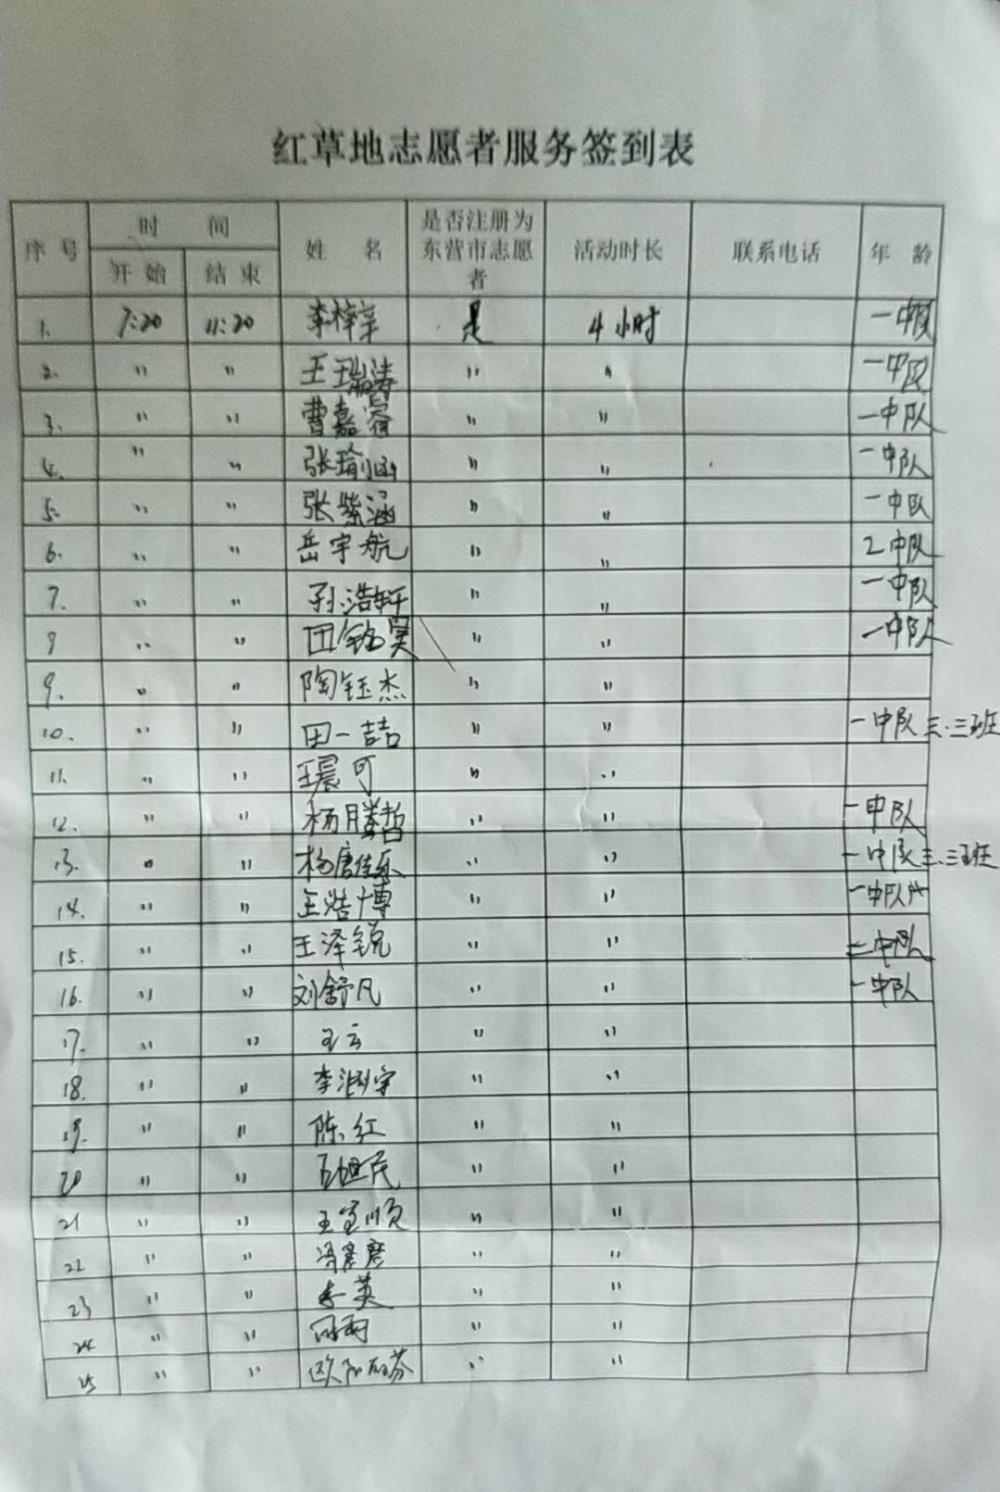 红草地志愿者服务签到表
序号 时间 姓名 是否注册为东营市志愿者 活动时长 联系电话 年龄
开始 结束
1. 7:20 11:20 李梓辛 是 4小时 一中队
2. " " 王瑞涛 " " 一中队
3. " " 曹嘉容 " " 一中队
4. " " 张瑜涵 " " 一中队
5. " " 张紫涵 " " 一中队
6. " " 岳宇航 " " 2中队
7. " " 孙浩轩 " " 一中队
8 " " 田铭昊 " " 一中队
9. " " 陶钰杰 " "
10. " " 田一喆 " " 一中队三.三班
11. " " 王晨可 " "
12. " " 杨腾哲 " " 一中队
13. " " 杨唐佳乐 " " 一中队三.三班
14. " " 王浩博 " " 一中队
15. " " 王泽锐 " " 二中队
16. " " 刘舒凡 " " 一中队
17. " " 王云 " "
18. " " 李 宇 " "
19. " " 陈红 " "
20 " " 民 " "
21 " " 王宝顺 " "
22 " " 冯 " "
23 " " 李英 " "
24 " " " "
25 " " 欧阳 芬 " "